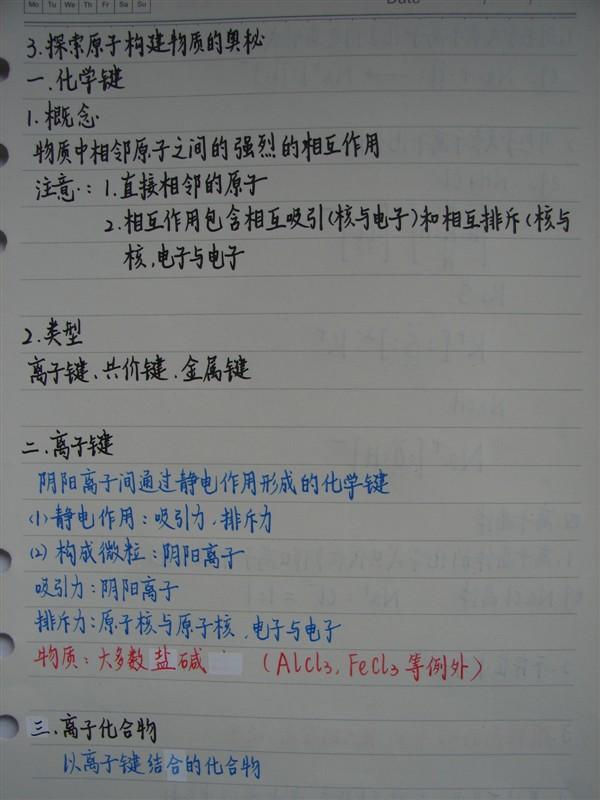 Mo Tu We Th Fr Sa Su
Date
3.探索原子构建物质的奥秘
一.化学键
1.概念
物质中相邻原子之间的强烈的相互作用
注意:1.直接相邻的原子
2.相互作用包含相互吸引(核与电子)和相互排斥(核与
核,电子与电子
2.类型
离子键、共价键、金属键
二.离子键
阴阳离子间通过静电作用形成的化学键
(1)静电作用:吸引力,排斥力
(2)构成微粒:阴阳离子
吸引力:阴阳离子
排斥力:原子核与原子核,电子与电子
物质:大多数盐碱 (AlCl3,FeCl3等例外)
三.离子化合物
以离子键结合的化合物